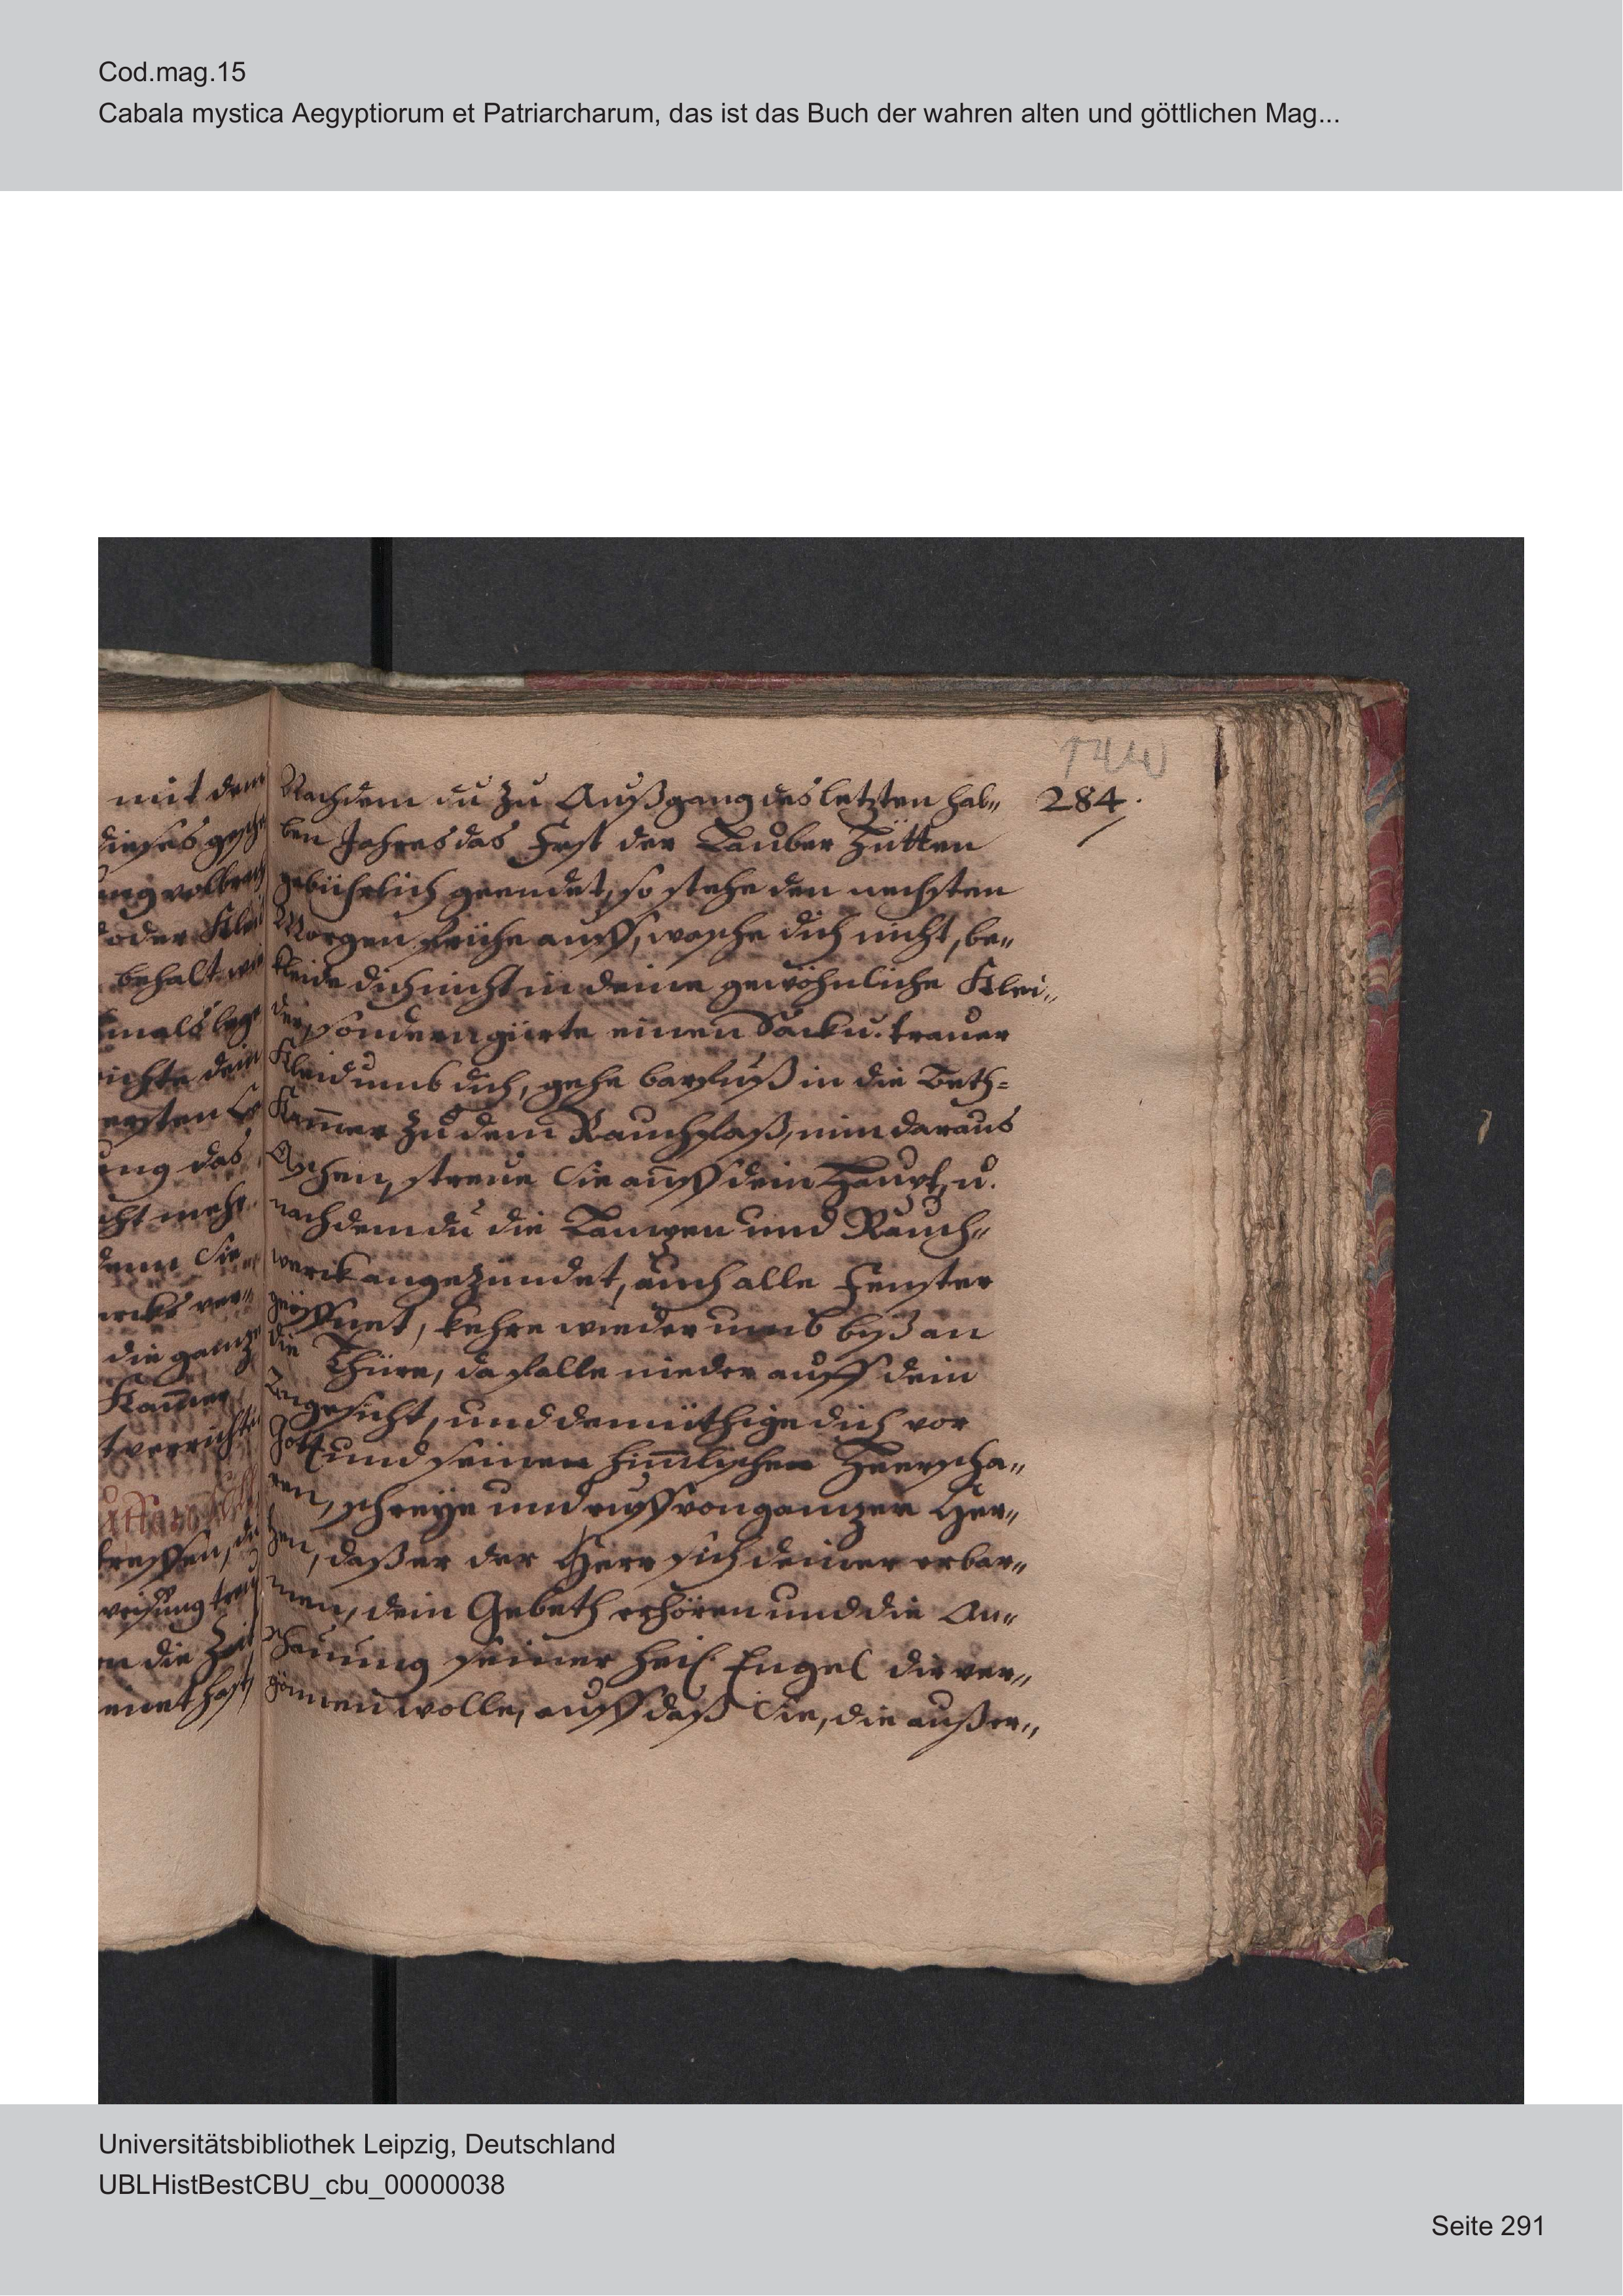 Cod.mag.15
Cabala mystica Aegyptiorum et Patriarcharum, das ist das Buch der wahren alten und göttlichen Mag...
284.
Nachdem du zu Außgang des letzten hal„
ben Jahres das Fest der Lauber Hütten
gebührlich geendet, so stehe den nechsten
Morgen frühe auff, wasche dich nicht, be„
kleide dich nicht in deine gewöhnliche Klei„
der, sondern gürte einen Sack u. trauer
Kleid umb dich, gehe barfuß in die Beth=
Kam̅er zu dem Rauchfaß, nim daraus
Aschen, streue sie auff dein Haupt, u.
nachdem du die Lampen und Rauch„
werck angezündet, auch alle Fenster
geöffnet, kehre wieder umb biß an
die Thüre, da falle nieder auff dein
Angesicht, und demüthige dich vor
Gott und seinen him̅lischen Heerscha„
ren, schreye und ruff von ganzen Her„
zen, daß er der Herr sich deiner erbar„
men, dein Gebeth erhören und die An„
schauung seiner heil. Engel dir ver„
gönnen wolle, auff daß sie, die außer„
mit dem
dieses
oder
behalt
ersten
das
mehr
sie
ver„
die ganze
Kam̅er
die Zeit
hast
Universitätsbibliothek Leipzig, Deutschland
UBLHistBestCBU_cbu_00000038
Seite 291